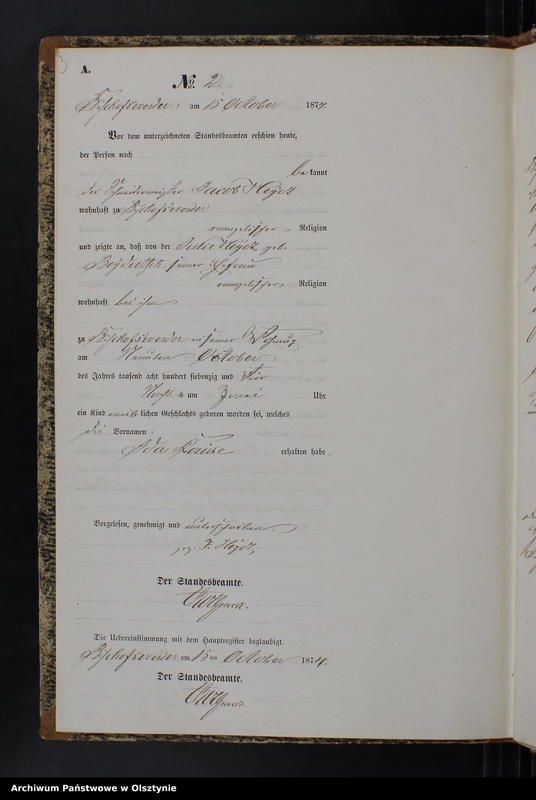 A.
No. 2
Bischofswerder am 15 October 1874.
Vor dem unterzeichneten Standesbeamten erschien heute,
der Person nach
bekannt
der Schneidermeister Jacob
wohnhaft zu Bischofswerder
evangelischer Religion
und zeigte an, daß von der Julie geb.
seiner Ehefrau
evangelischer Religion
wohnhaft bei ihm
zu Bischofswerder in seiner Wohnung
am Neunten October
des Jahres tausend acht hundert siebenzig und Vier
Nachts um Uhr
ein Kind weiblichen Geschlechts geboren worden sei, welches
die Vornamen
Ida Louise erhalten habe.
Vorgelesen, genehmigt und unterschrieben.
gez. J.
Der Standesbeamte.
Die Uebereinstimmung mit dem Hauptregister beglaubigt.
Bischofswerder am 15ten October 1874.
Der Standesbeamte.
Archiwum Państwowe w Olsztynie